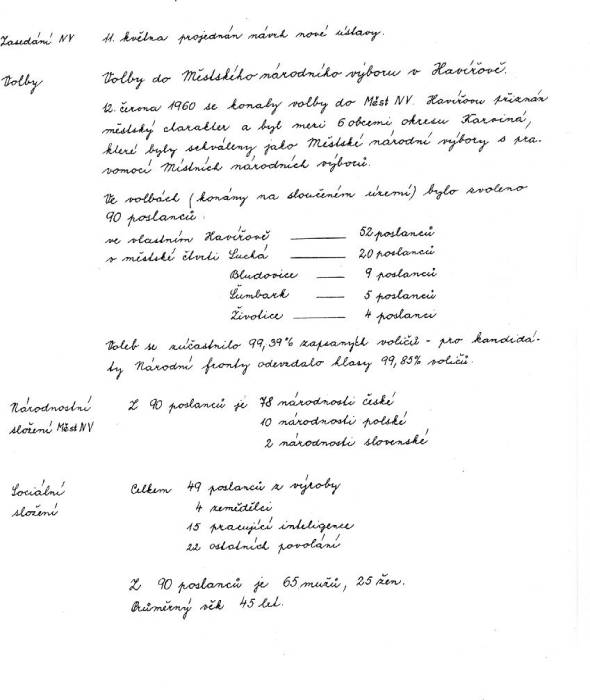 Zasedání NV 11. května projednán návrh nové ústavy.
Volby Volby do Městského národního výboru v Havířově.
12. června 1960 se konaly volby do Měst NV. Havířovu přiznán
městský charakter a byl mezi 6 obcemi okresu Karviná,
které byly schváleny jako Městské národní výbory s pra-
vomocí Místních národních výborů.
Ve volbách (konány na sloučeném území) bylo zvoleno
90 poslanců.
ve vlastním Havířově —— 52 poslanců
v městské čtvrti Suchá —— 20 poslanců
Bludovice —— 9 poslanců
Šumbark —— 5 poslanců
Životice —— 4 poslanci
Voleb se zúčastnilo 99,39% zapsaných voličů - pro kandidá-
ty Národní fronty odevzdalo hlasy 99,85% voličů.
Národnostní Z 90 poslanců je 78 národnosti české
složení Měst NV 10 národnosti polské
2 národnosti slovenské
Sociální Celkem 49 poslanců z výroby
složení 4 zemědělci
15 pracující inteligence
22 ostatních povolání
Z 90 poslanců je 65 mužů, 25 žen.
Průměrný věk 45 let.